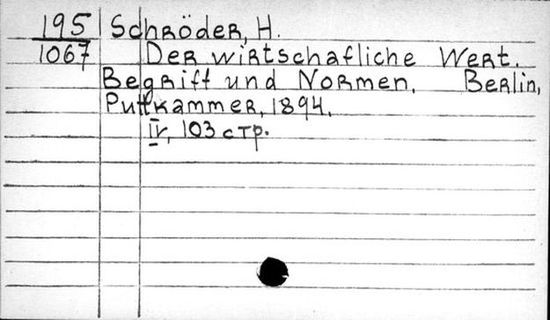 195 Schröder, H.
1067 Der wirtschafliche Wert.
Begriff und Normen. Berlin,
Puttkammer, 1894.
IV, 103 стр.